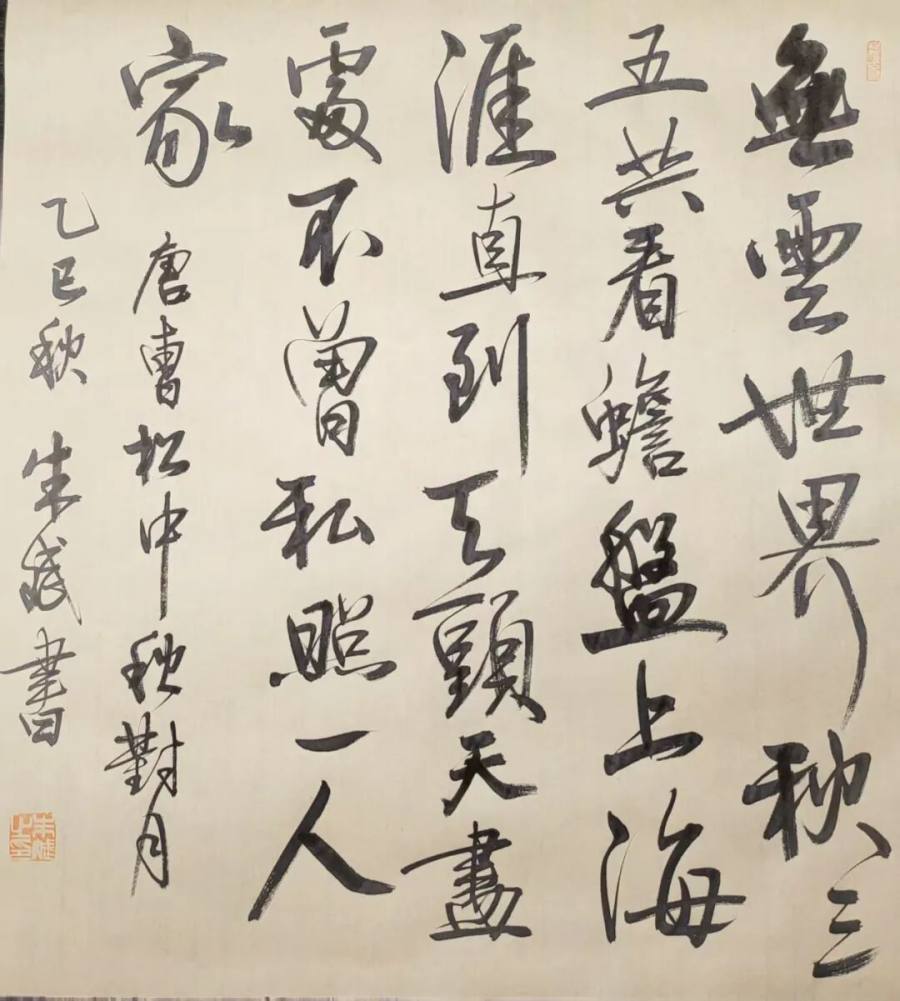 無雲世界秋三
五共看蟾盤上海
涯直到天頭天盡
處不曾私照一人
家 唐曹松中秋對月
乙巳秋 朱書